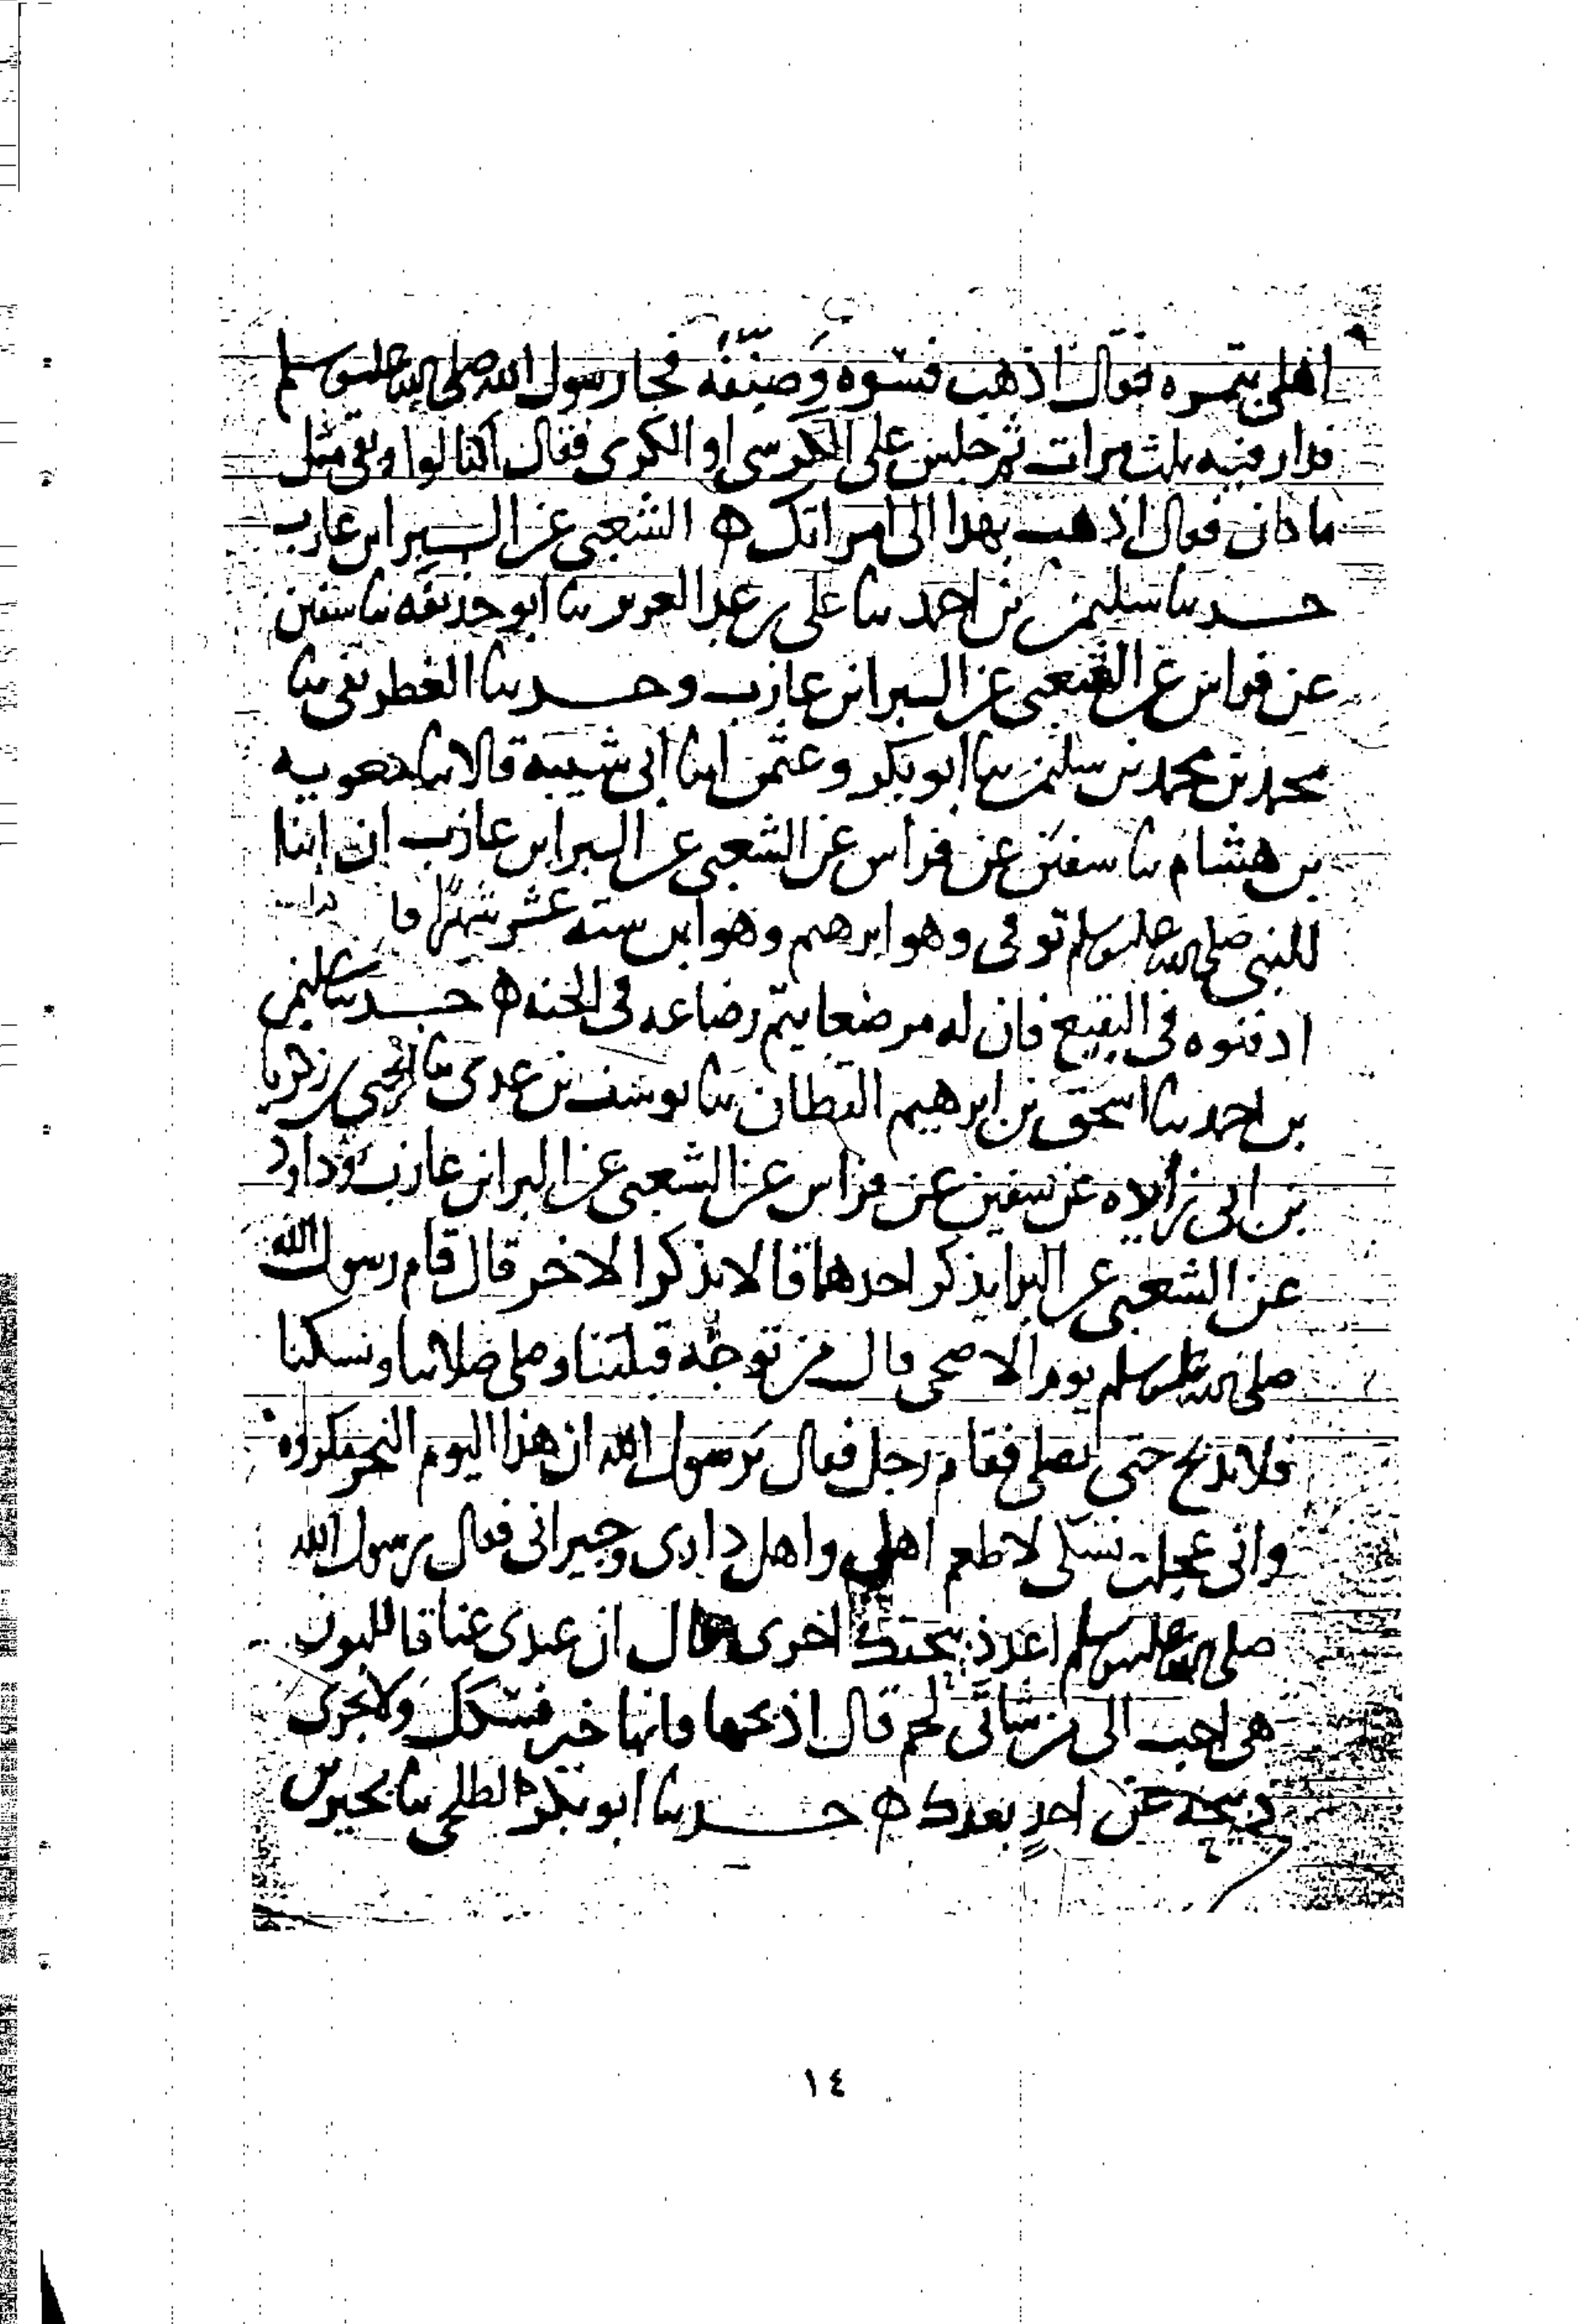 اهلى بتمره فقال اذهب فسوه وصنفه فجا رسول الله صلى الله عليه وسلم
فدار فيه ثلث مرات ثم جلس على الكرسى او الكرى فقال اكتالوا وبقى مثل
ما كان فقال اذهب بهذا الى امراتك ه الشعبى عن البرا بن عازب
حدثنا سليمن بن احمد ثنا على بن عبد العزيز ثنا ابو حذيفه ثنا سفين
عن فراس عن الشعبى عن البرا بن عازب وحدثنا الغطريفى ثنا
محمد بن محمد بن سليمن ثنا ابو بكر وعثمن ابنا ابى شيبه قالا ثنا معويه
بن هشام ثنا سفين عن فراس عن الشعبى عن البرا بن عازب ان ابنا
للنبى صلى الله عليه وسلم توفى وهو ابرهيم وهو ابن سته عشر شهرًا
ادفنوه فى البقيع فان له مرضعا يتم رضاعه فى الجنه ه حدثنا سليمن
بن احمد ثنا اسحق بن ابرهيم القطان ثنا يوسف بن عدى ثنا يحيى بن زكريا
بن ابى زايده عن سفين عن فراس عن الشعبى عن البرا بن عازب وداود
عن الشعبى عن البرا يذكر احدهما قالا يذكر الاخر قال قام رسول الله
صلى الله عليه وسلم يوم الاضحى قال من توجه قبلتنا وصلى صلاتنا ونسك نسكنا
فلا يذبح حتى يصلى فقام رجل فقال يرسول الله ان هذا اليوم اللحم مكروه
وانى عجلت نسكى لاطعم اهلى واهل دارى وجيرانى فقال رسول الله
صلى الله عليه وسلم اعد ذبحتك اخرى فقال ان عندى عناقا للبون
هى احب الى من شاتى لحم قال اذبحها فانها خير نسكك ولا تجزى
ذبيحة عن احدٍ بعدك ه حدثنا ابو بكر الطلحى ثنا
١٤